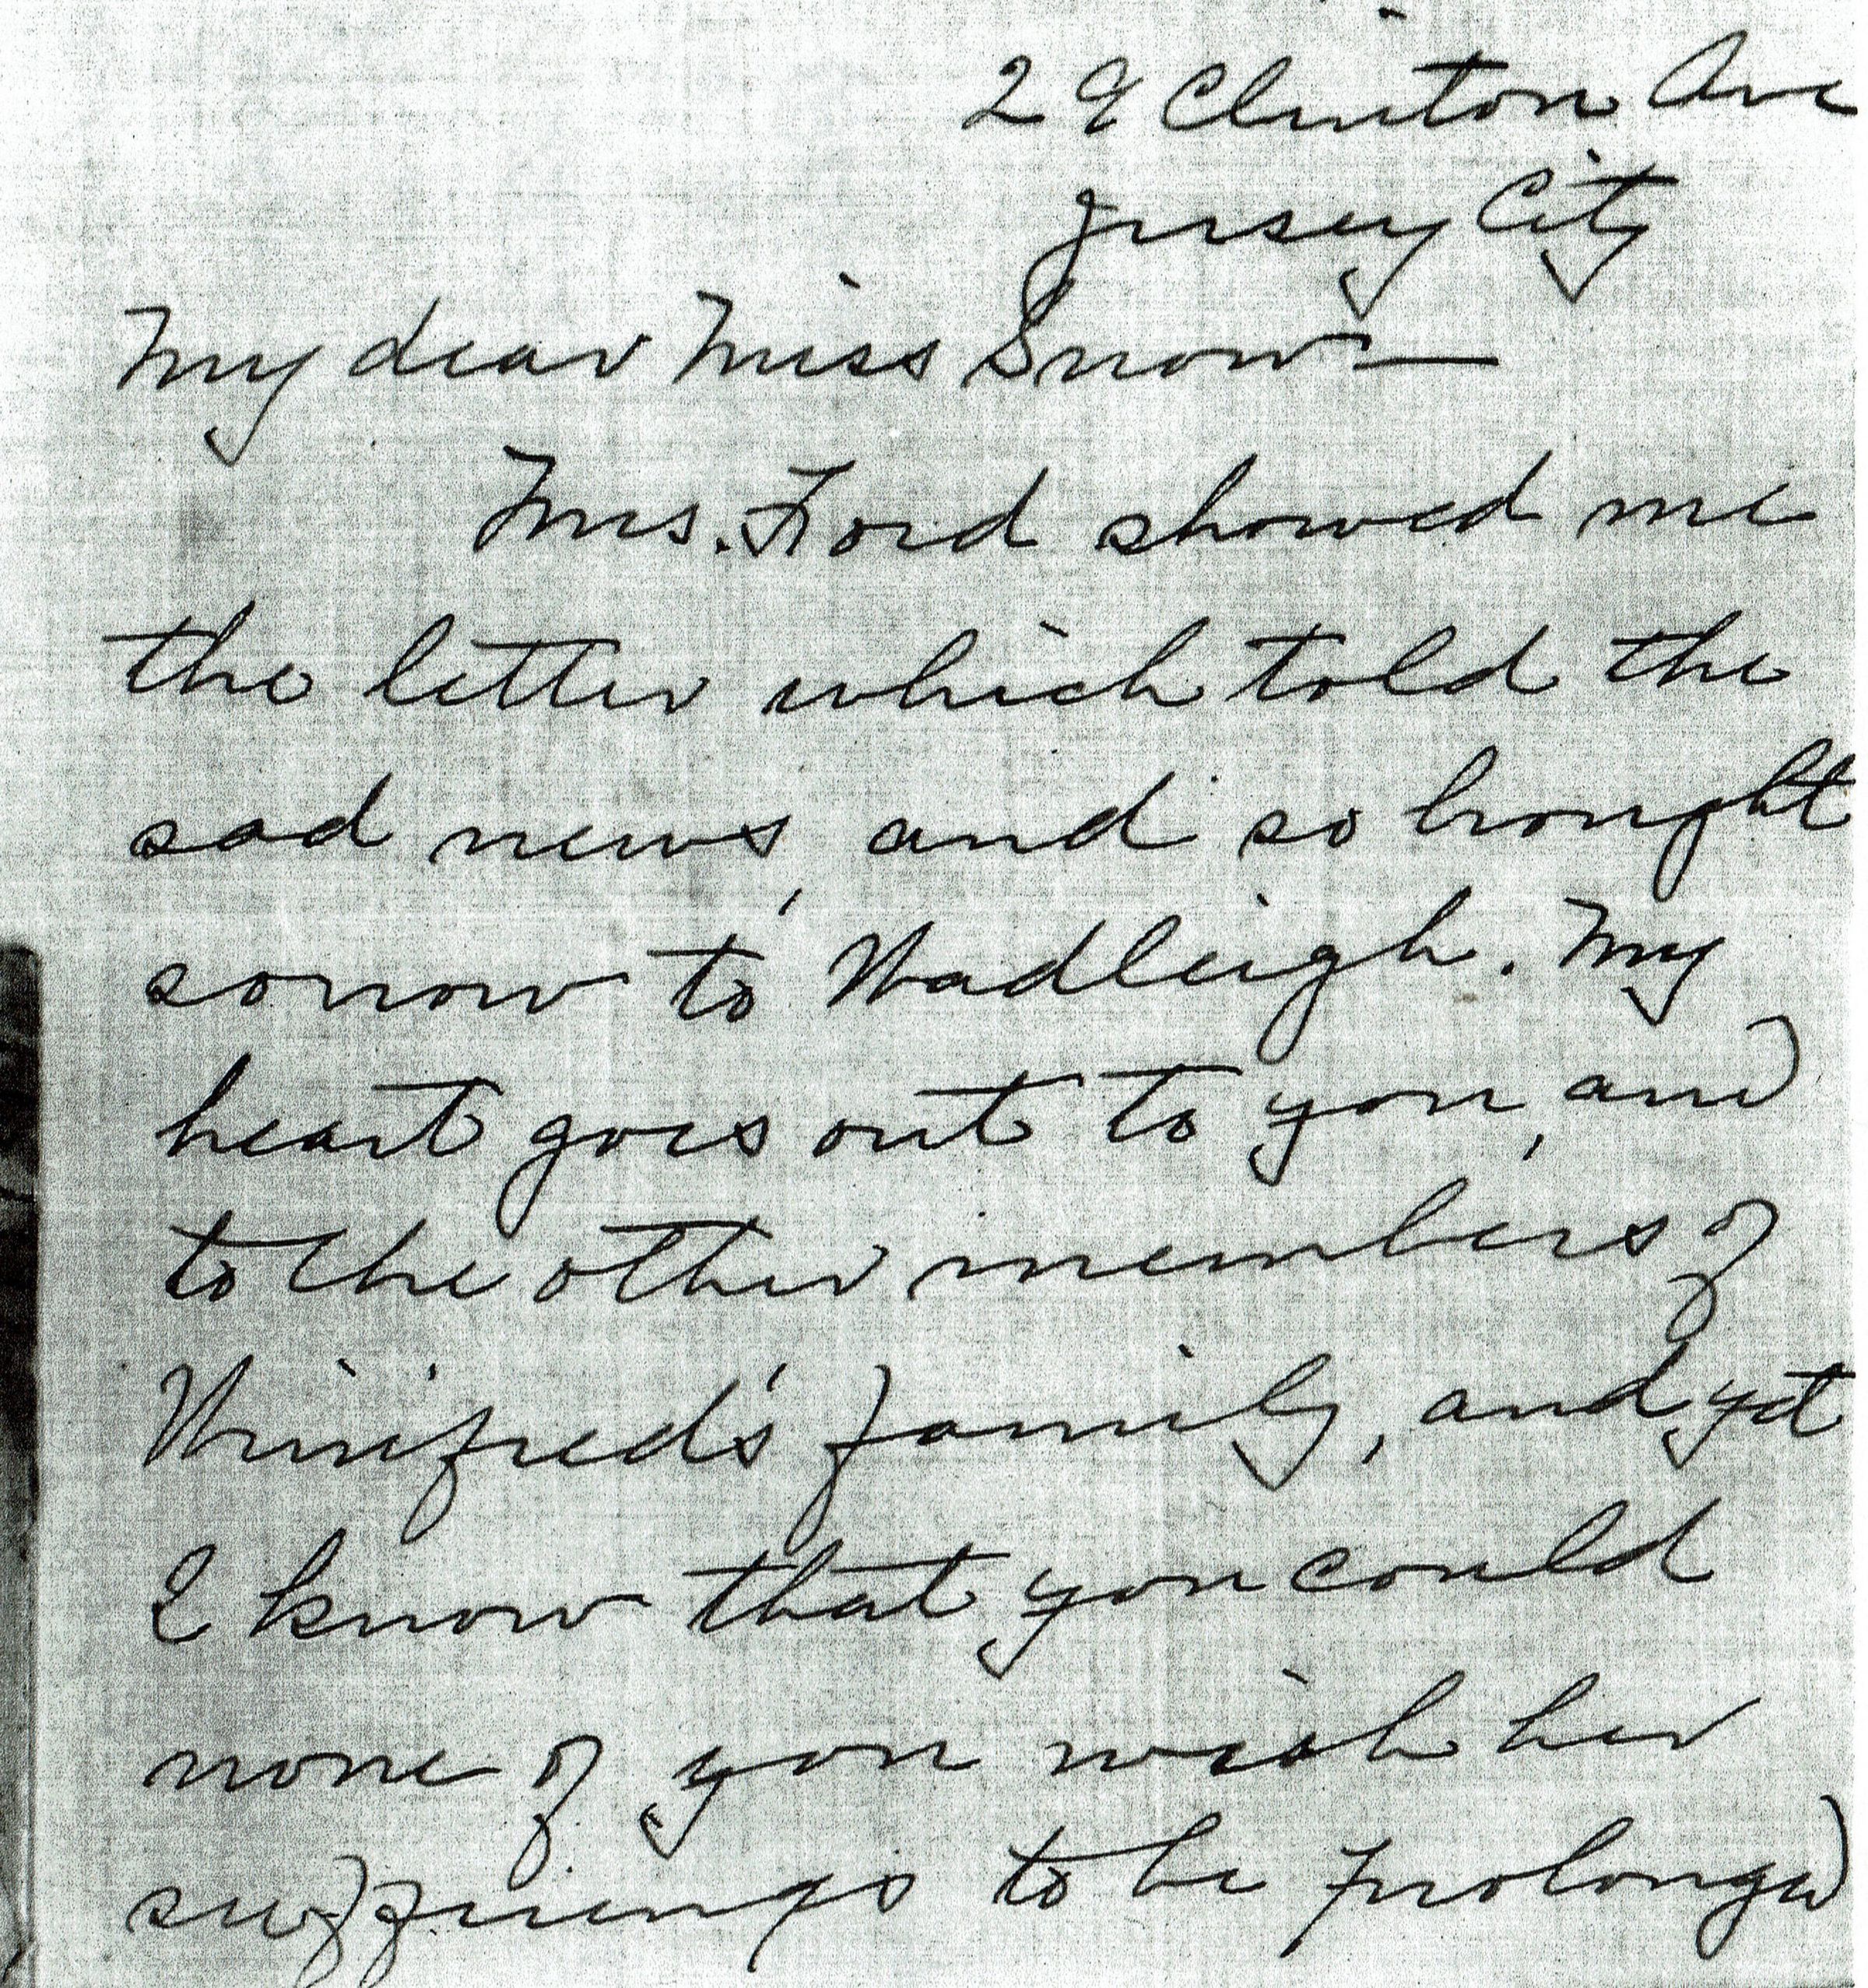 29 Clinton Ave
Jersey City
My dear Miss Snow—
Mrs. Ford showed me
the letter which told the
sad news, and so brought
sorrow to Wadleigh. My
heart goes out to you, and
to the other members of
Winifred's family, and yet
I know that you could
none of you wish her
sufferings to be prolonged